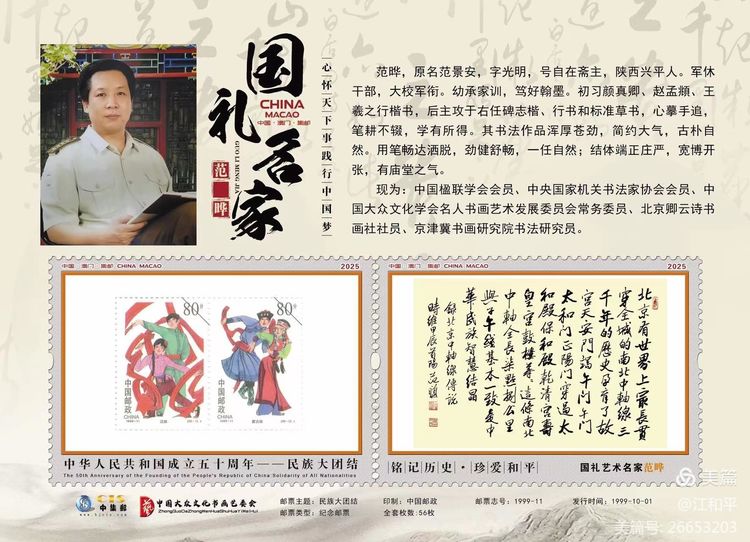 国礼名家
CHINA
MACAO
中国·澳门·集邮
GUO LI MING JIA
范
晔
心怀天下事践行中国梦
范晔，原名范景安，字光明，号自在斋主，陕西兴平人。军休
干部，大校军衔。幼承家训，笃好翰墨。初习颜真卿、赵孟頫、王
羲之行楷书，后主攻于右任碑志楷、行书和标准草书，心摹手追，
笔耕不辍，学有所得。其书法作品浑厚苍劲，简约大气，古朴自
然。用笔畅达洒脱，劲健舒畅，一任自然；结体端正庄严，宽博开
张，有庙堂之气。
现为：中国楹联学会会员、中央国家机关书法家协会会员、中
国大众文化学会名人书画艺术发展委员会常务委员、北京卿云诗书
画社社员、京津冀书画研究院书法研究员。
中国·澳门·集邮 CHINA MACAO
2025
80分
80分
中国邮政
CHINA
中国邮政
CHINA
1999-11
1999-11
中华人民共和国成立五十周年——民族大团结
The 50th Anniversary of the Founding of the People's Republic of China Solidarity of All Nationalities
中国·澳门·集邮 CHINA MACAO
2025
北京有世界上最长贯
穿全城的南北中轴线三
千年的历史甲有了故
宫天安门端午门午门
太和门正阳门穿过太
和殿保和殿乾清宫寿
皇宫鼓楼等这条南北
中轴全长柒点捌公里
与子午线基本一致是中
华民族智慧结晶
录北京中轴线传说
时维甲辰首阳范晔
铭记历史·珍爱和平
国礼艺术名家范晔
CIS
中集邮
中国大众文化书画艺委会
ZhongGuoDaZhongWenHuaShuHuaYiWeiHui
邮票主题：民族大团结
邮票类型：纪念邮票
印制：中国邮政
全套枚数：56枚
邮票志号：1999-11
发行时间：1999-10-01
美篇
@江和平
美篇号：26653203